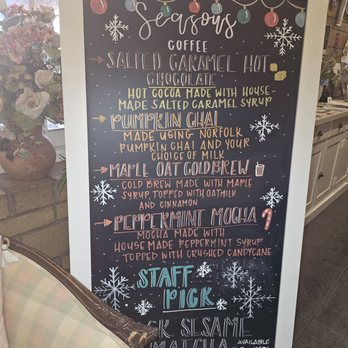 Seasons
COFFEE
SALTED CARAMEL HOT
CHOCOLATE
HOT COCOA MADE WITH HOUSE-
MADE SALTED CARAMEL SYRUP
PUMPKIN CHAI
MADE USING NORFOLK
PUMPKIN CHAI AND YOUR
CHOICE OF MILK
MAPLE OAT COLDBREW
COLD BREW MADE WITH MAPLE
SYRUP, TOPPED WITH OATMILK
AND CINNAMON
PEPPERMINT MOCHA
MOCHA MADE WITH
HOUSE MADE PEPPERMINT SYRUP
TOPPED WITH CRUSHED CANDYCANE
STAFF
PICK
SESAME
MATCHA
AVAILABLE